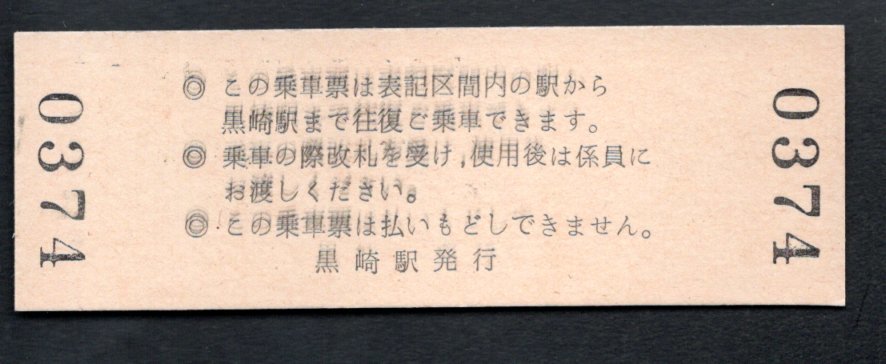 0374
◎ この乗車票は表記区間内の駅から
黒崎駅まで往復ご乗車できます。
◎ 乗車の際改札を受け,使用後は係員に
お渡しください。
◎ この乗車票は払いもどしできません。
黒崎駅発行
0374